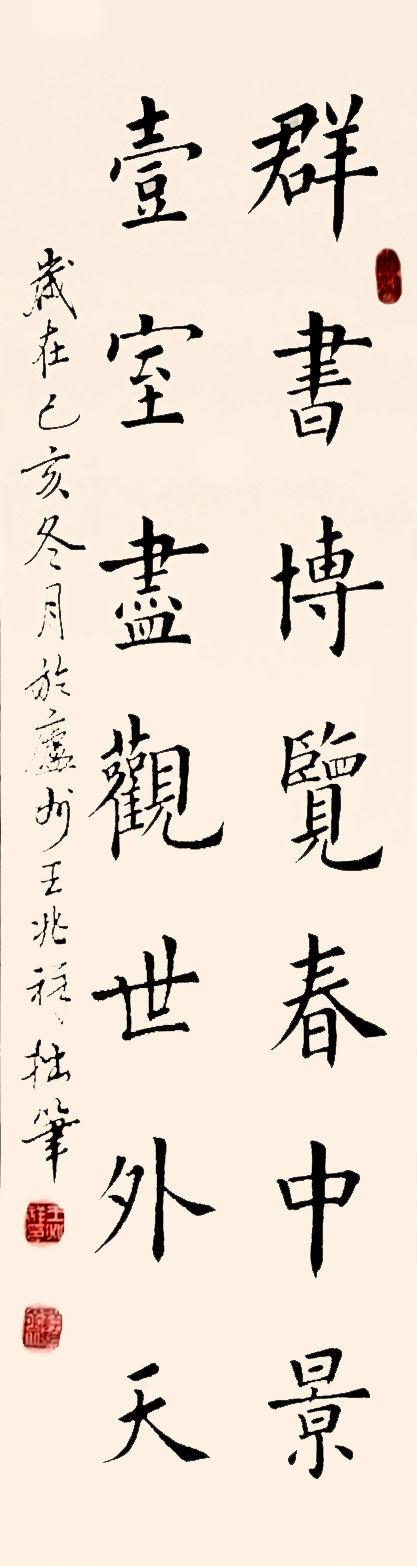 群書博覽春中景
壹室盡觀世外天
歲在己亥冬月於廬州王兆祥拙筆